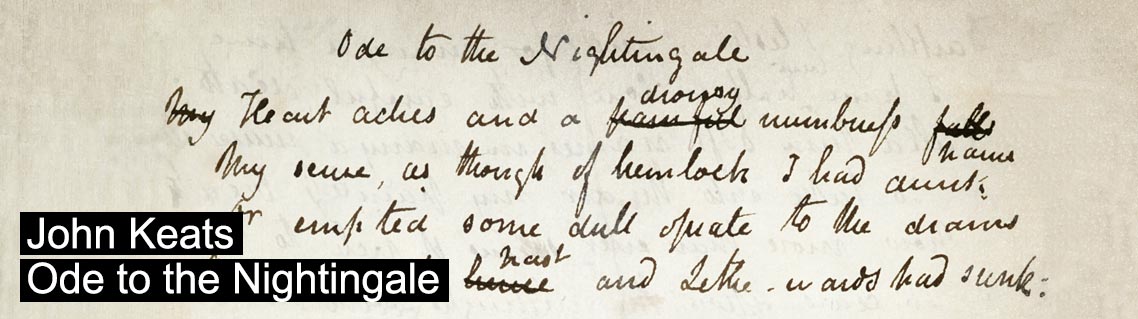 Ode to the Nightingale
drowsy
My Heart aches and a painful numbneſs falls
pains
My sense, as though of hemlock I had drunk.
Or emptied some dull opiate to the drains
past
hence and Lethe-wards had sunk:
John Keats
Ode to the Nightingale